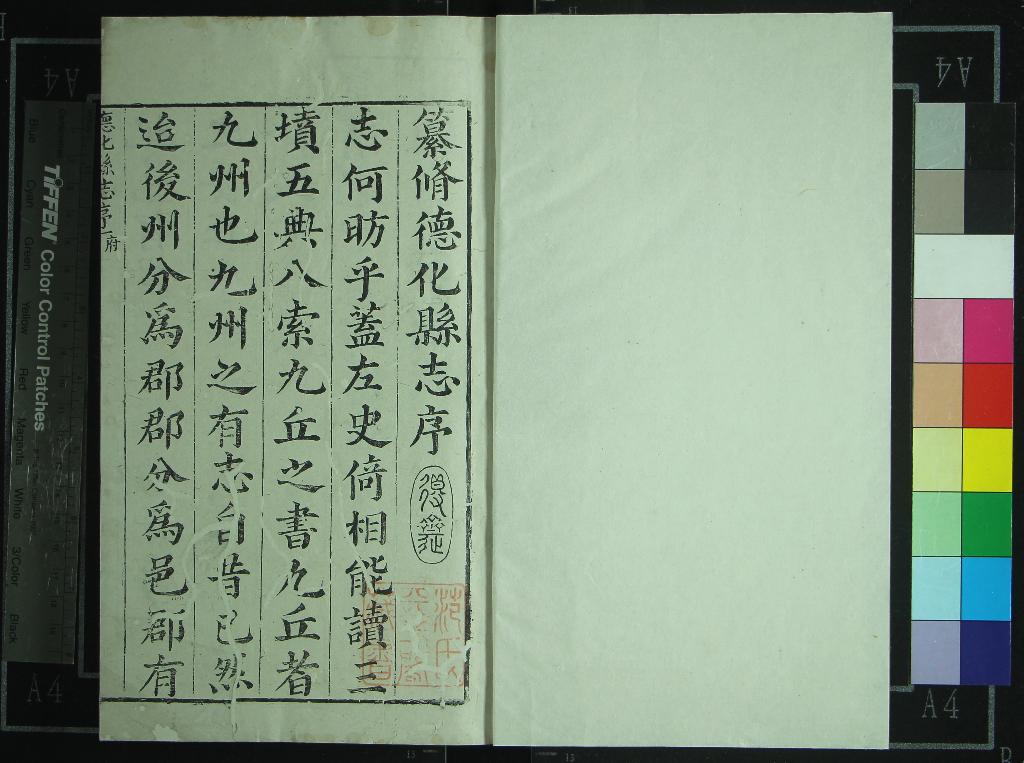 纂脩德化縣志序
志何昉乎蓋左史倚相能讀三
墳五典八索九丘之書九丘者
九州也九州之有志自昔已然
迨後州分爲郡郡分爲邑郡有
德化縣志序
TIFFEN Color Control Patches
Blue
Cyan
Green
Yellow
Red
Magenta
White
3/Color
Black
A4
A4
A4
A4